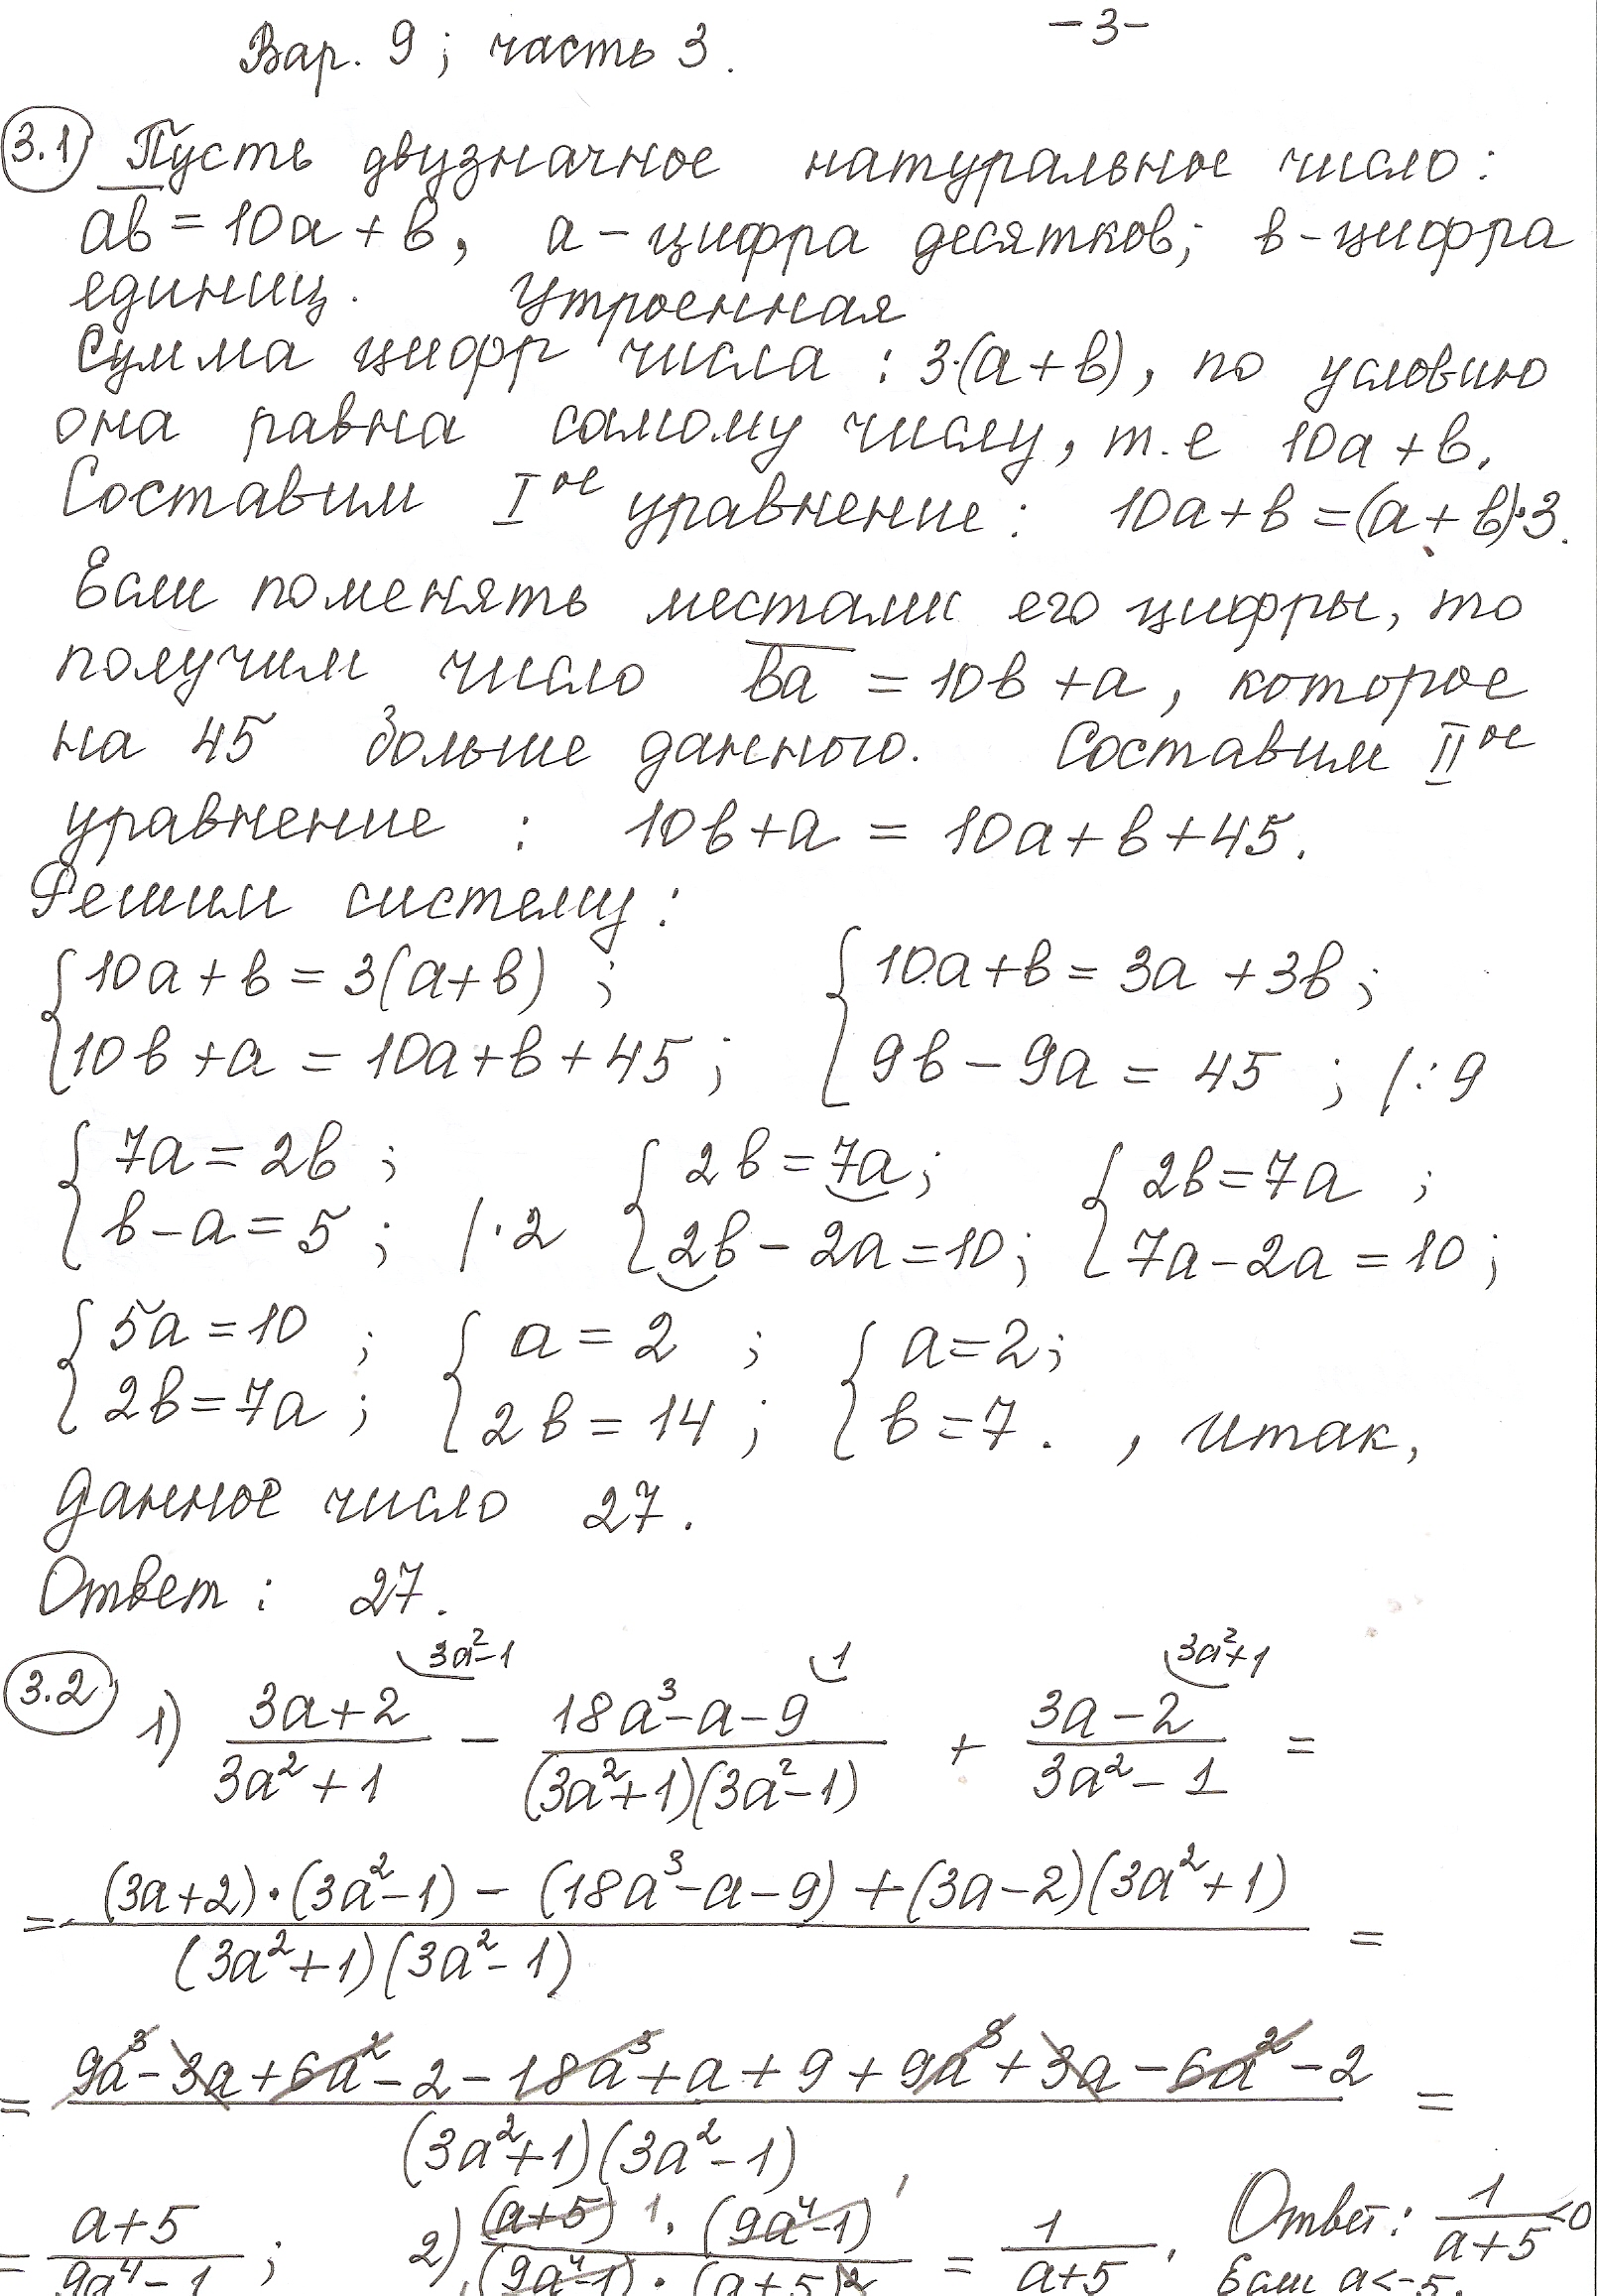 -3-
Вар. 9; часть 3.
3.1) Пусть двузначное натуральное число:
ab = 10a + b, a - цифра десятков; b - цифра
единиц. Утроенная
Сумма цифр числа : 3·(a+b), по условию
она равна самому числу, т.е 10a + b.
Составим I ое уравнение: 10a + b = (a + b)·3.
Если поменять местами его цифры, то
получим число ba = 10b + a, которое
на 45 больше данного. Составим II ое
уравнение : 10b + a = 10a + b + 45.
Решим систему:
{10a + b = 3(a+b) ; {10a + b = 3a + 3b;
{10b + a = 10a + b + 45 ; {9b - 9a = 45 ; /:9
{7a = 2b ; {2b = 7a ; {2b = 7a ;
{b - a = 5 ; /·2 {2b - 2a = 10; {7a - 2a = 10;
{5a = 10 ; {a = 2 ; {a = 2;
{2b = 7a ; {2b = 14 ; {b = 7. , итак,
данное число 27.
Ответ : 27.
3a²-1 1 3a²+1
3.2) 1) (3a+2)/(3a²+1) - (18a³-a-9)/((3a²+1)(3a²-1)) + (3a-2)/(3a²-1) =
= ((3a+2)·(3a²-1) - (18a³-a-9) + (3a-2)(3a²+1))/((3a²+1)(3a²-1)) =
= (9a³-3a+6a²-2-18a³+a+9+9a³+3a-6a²-2)/((3a²+1)(3a²-1)) =
= (a+5)/(9a⁴-1) ; 2) ((a+5)¹·(9a⁴-1)¹)/((9a⁴-1)·(a+5)²) = 1/(a+5). Ответ: 1/(a+5) <0
Если a<-5.